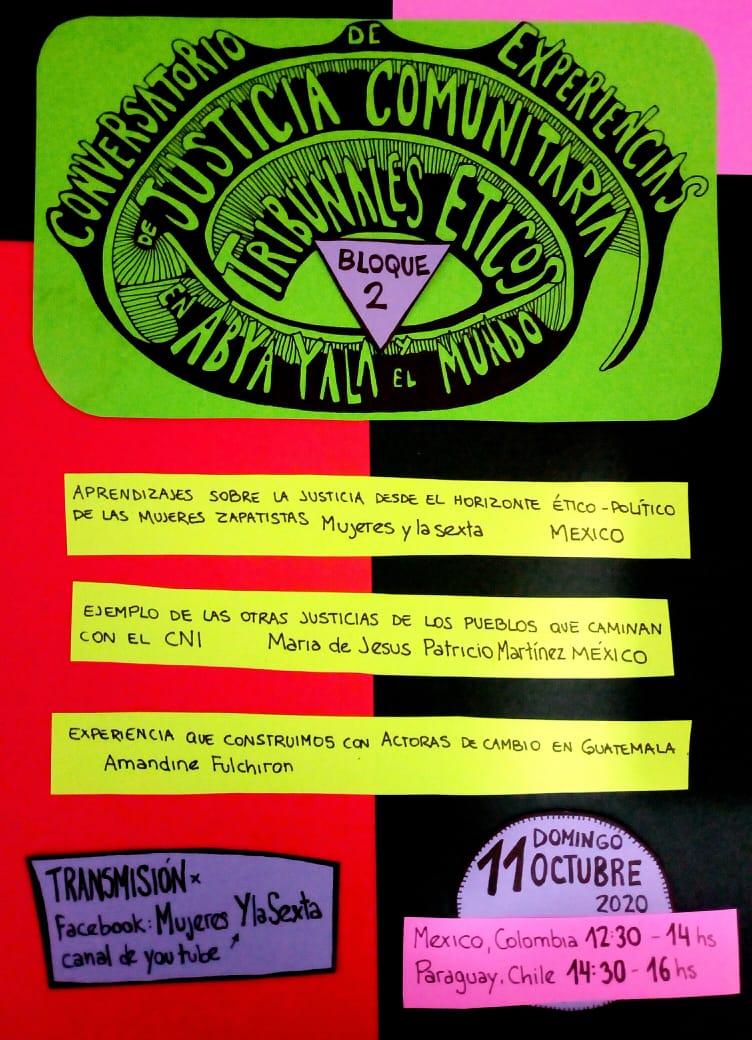 CONVERSATORIO DE EXPERIENCIAS
DE JUSTICIA COMUNITARIA
TRIBUNALES ETICOS
BLOQUE
2
EN ABYA YALA Y EL MUNDO
APRENDIZAJES SOBRE LA JUSTICIA DESDE EL HORIZONTE ÉTICO-POLÍTICO
DE LAS MUJERES ZAPATISTAS Mujeres y la sexta MEXICO
EJEMPLO DE LAS OTRAS JUSTICIAS DE LOS PUEBLOS QUE CAMINAN
CON EL CNI Maria de Jesus Patricio Martínez MÉXICO
EXPERIENCIA QUE CONSTRUIMOS CON ACTORAS DE CAMBIO EN GUATEMALA.
Amandine Fulchiron
TRANSMISIÓN x
Facebook: Mujeres YlaSexta
canal de youtube ↗
DOMINGO
11 OCTUBRE
2020
Mexico, Colombia 12:30 - 14 hs
Paraguay, Chile 14:30 - 16 hs